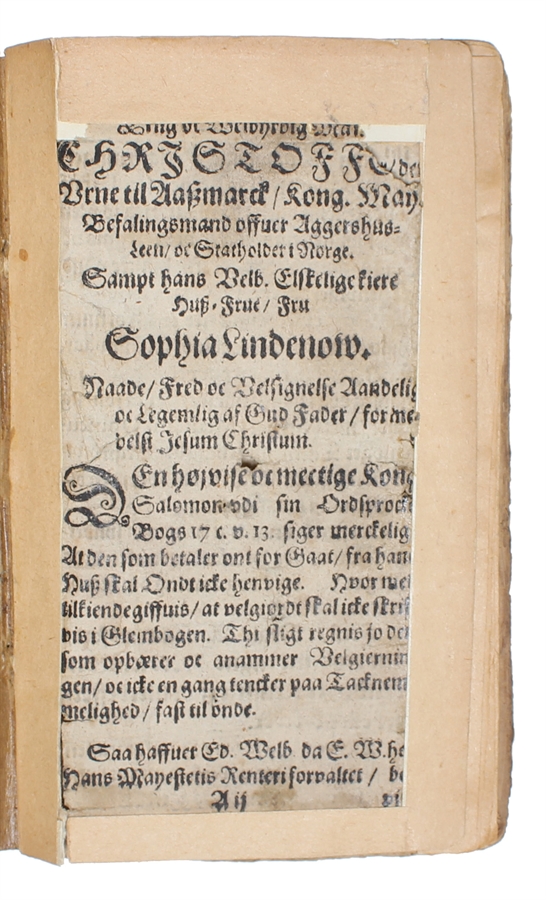 oc Velbyrdig
CHRISTOFFER / de
Vrne til Aaßmarck / Kong. May
Befalingsmand offuer Aggershus-
Leen / oc Statholder i Norge.
Sampt hans Velb. Elskelige kiere
Huß-Frue / Fru
Sophia Lindenow.
Naade / Fred oc Velsignelse Aandelig
oc Legemlig af Gud Fader / for me-
delst Jesum Christum.
DEn højvise oc mectige Kong
Salomon vdi sin Ordsprock
Bogs 17 c. v. 13. siger merckelig
At den som betaler ont for Gaat / fra hans
Huß skal Ondt icke henvige. Hvor
tilkiende giffuis / at velgiordt skal icke skrif
vis i Glembogen. Thi sligt regnis jo
som opbærer oc anammer Velgiernin
gen / oc icke en gang tencker paa Tacknem
melighed / fast til onde.
Saa haffuer Ed. Welb da E. W. he
Hans Mayestetis Renteri forvaltet /
A ij